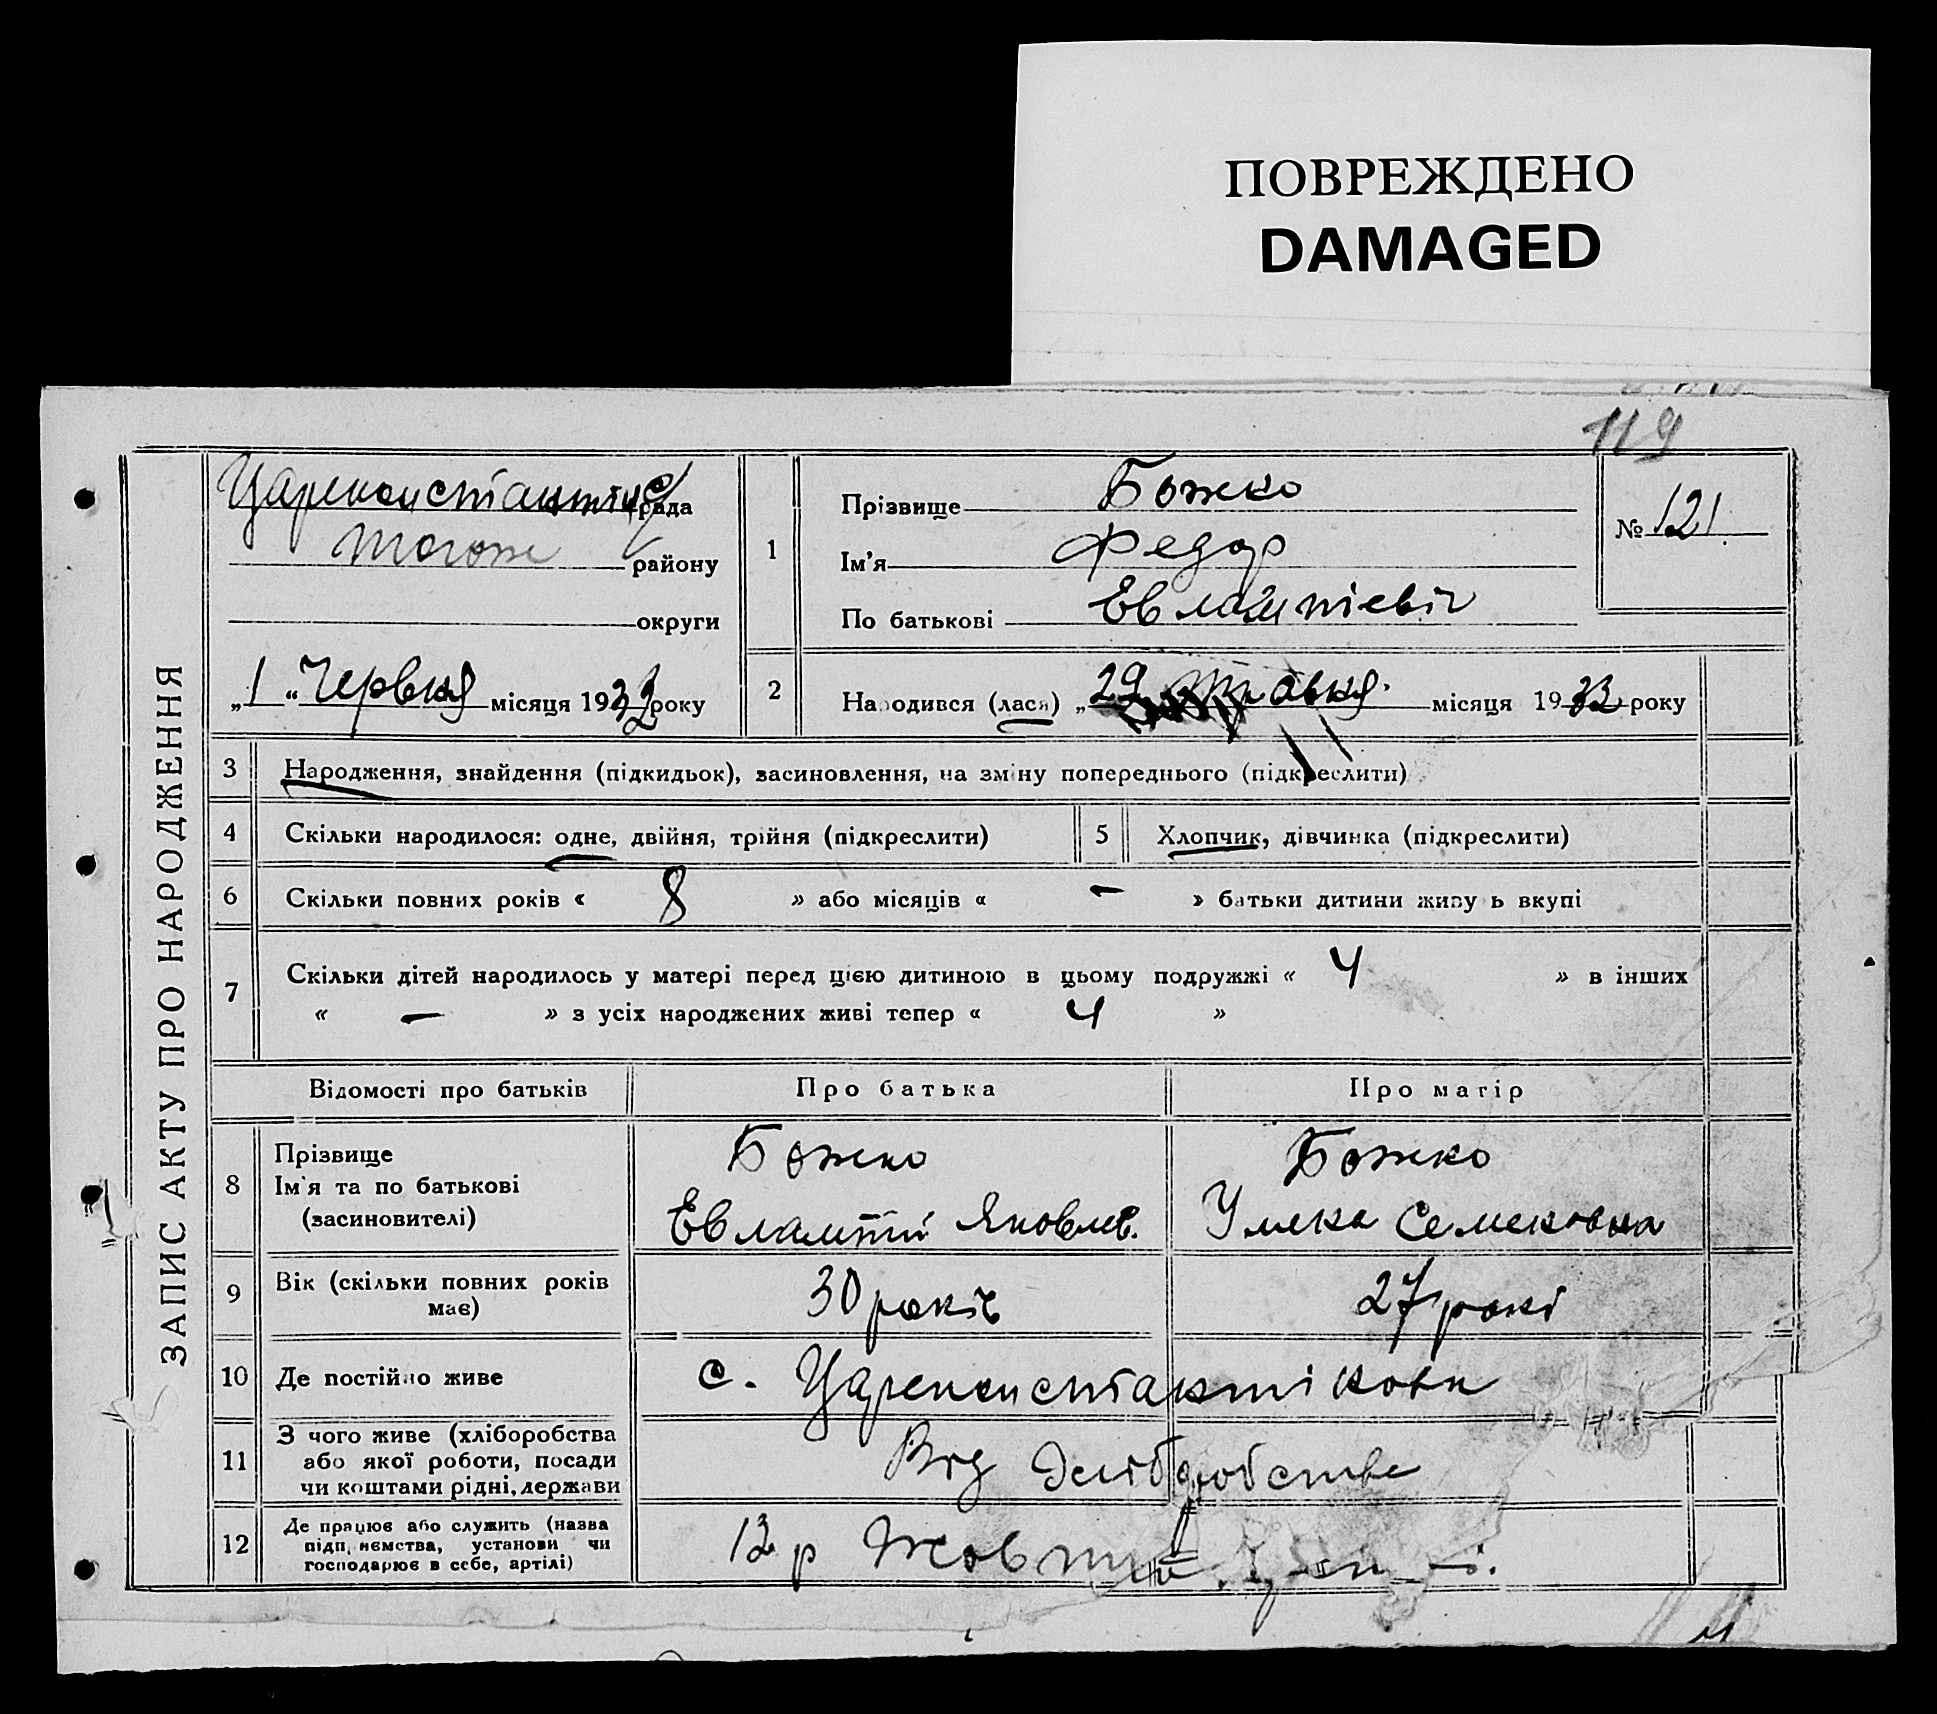 ПОВРЕЖДЕНО
DAMAGED
119
ЗАПИС АКТУ ПРО НАРОДЖЕННЯ
Царекистантинс рада
Тогож району
округи
„1“ Червня місяця 1933 року
1
Прізвище Божко
Ім'я Федор
По батькові Евлампієвіч
№ 121
2
Народився (лася) „29 травня місяця 1933 року
3 Народження, знайдення (підкидьок), засиновлення, на зміну попереднього (підкреслити)
4 Скільки народилося: одне, двійня, трійня (підкреслити)
5 Хлопчик, дівчинка (підкреслити)
6 Скільки повних років « 8 » або місяців « — » батьки дитини живуть вкупі
7 Скільки дітей народилось у матері перед цією дитиною в цьому подружжі « 4 » в інших
« — » з усіх народжених живі тепер « 4 »
Відомості про батьків Про батька Про матір
8 Прізвище
Ім'я та по батькові
(засиновителі)
Божко
Евлампій Яковлев.
Божко
Улека Семековна
9 Вік (скільки повних років
має)
30 років
27 рокі
10 Де постійно живе
с. Царекистантіновки
11 З чого живе (хліборобства
або якої роботи, посади
чи коштами рідні, держави
Від
12 Де працює або служить (назва
підприємства, установи чи
господарює в себе, артілі)
13 р